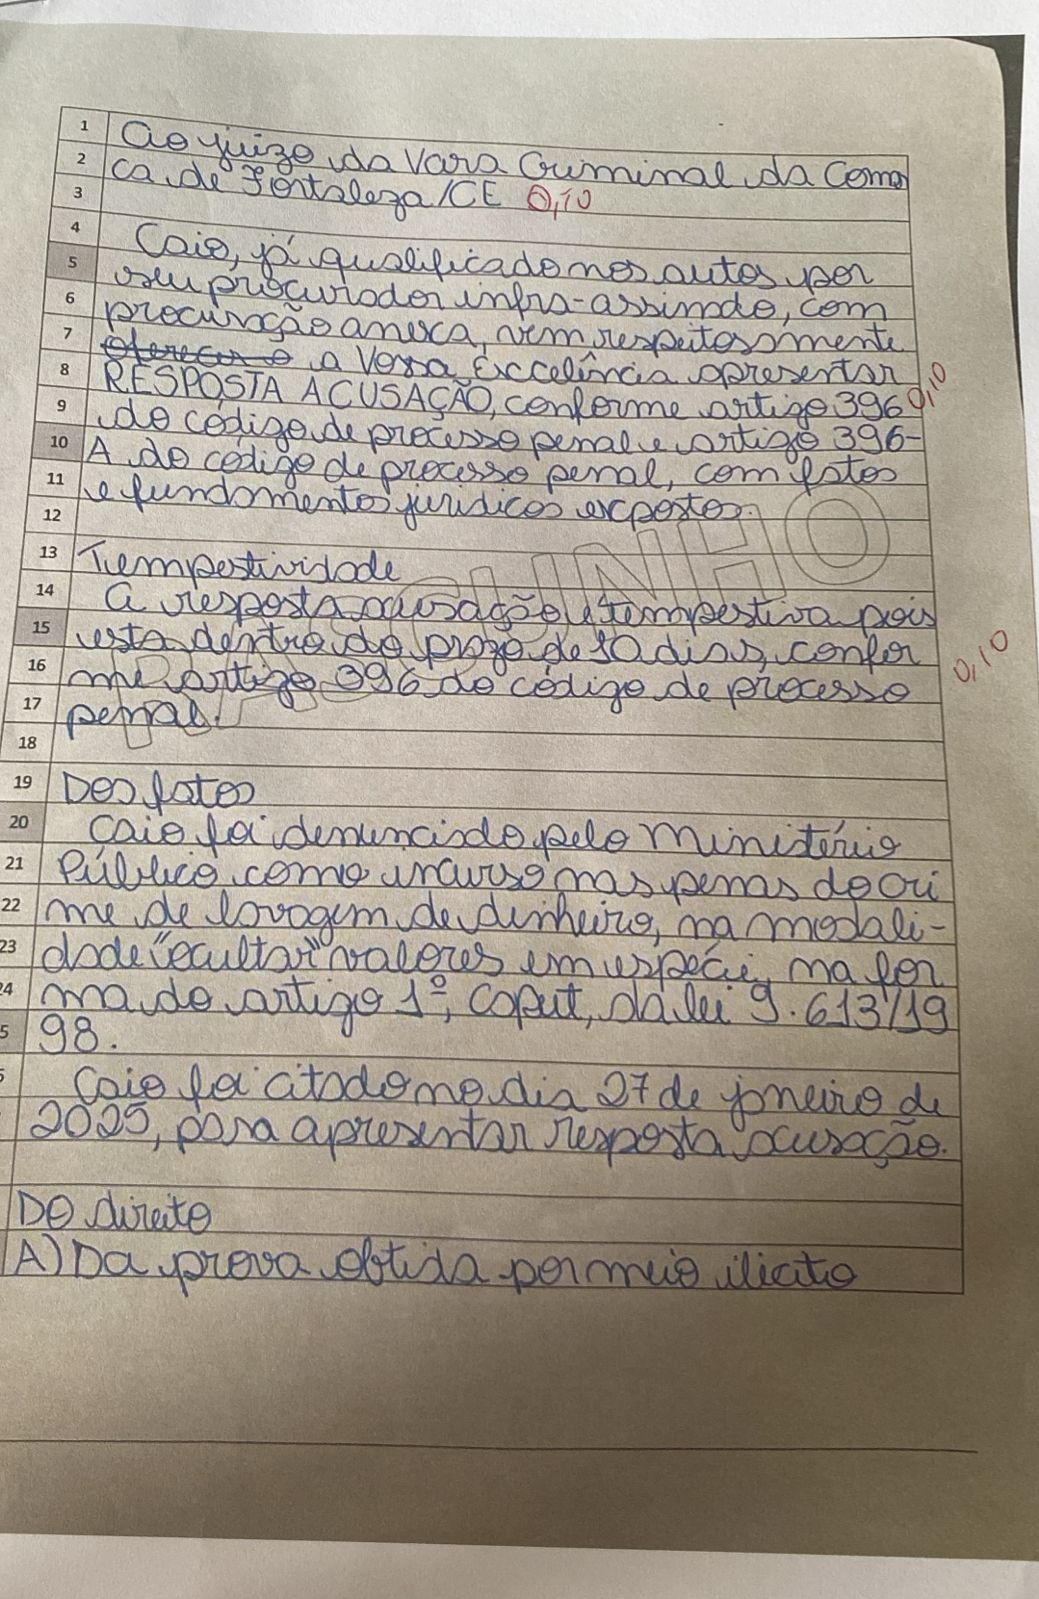 1 Ao juizo da Vara Criminal da Comar
2 ca de Fortaleza/CE 0,10
3
4 Caio, já qualificado nos autos por
5 seu procurador infra-assinado, com
6 procuração anexa, vem respeitosamente
7 oferecer o a Vossa Excelência apresentar
8 RESPOSTA A CUSAÇÃO, conforme artigo 396 0,10
9 do código de processo penal e artigo 396-
10 A do código de processo penal, com fatos
11 e fundamentos juridicos expostos.
12
13 Tempestividade
14 A resposta acusação é tempestiva pois
15 esta dentro do prazo de 10 dias, confor 0,10
16 me artigo 396 do código de processo
17 penal.
18
19 Dos fatos
20 Caio foi denunciado pelo Ministério
21 Público como incurso nas penas do cri
22 me de lavagem de dinheiro, na modali-
23 dade "ocultar" valores em espécie, na for
24 ma do artigo 1º, caput, da lei 9.613/19
5 98.
Caio foi citado no dia 27 de janeiro de
2025, para apresentar resposta acusação.
Do direito
A) Da prova obtida por meio ilicito